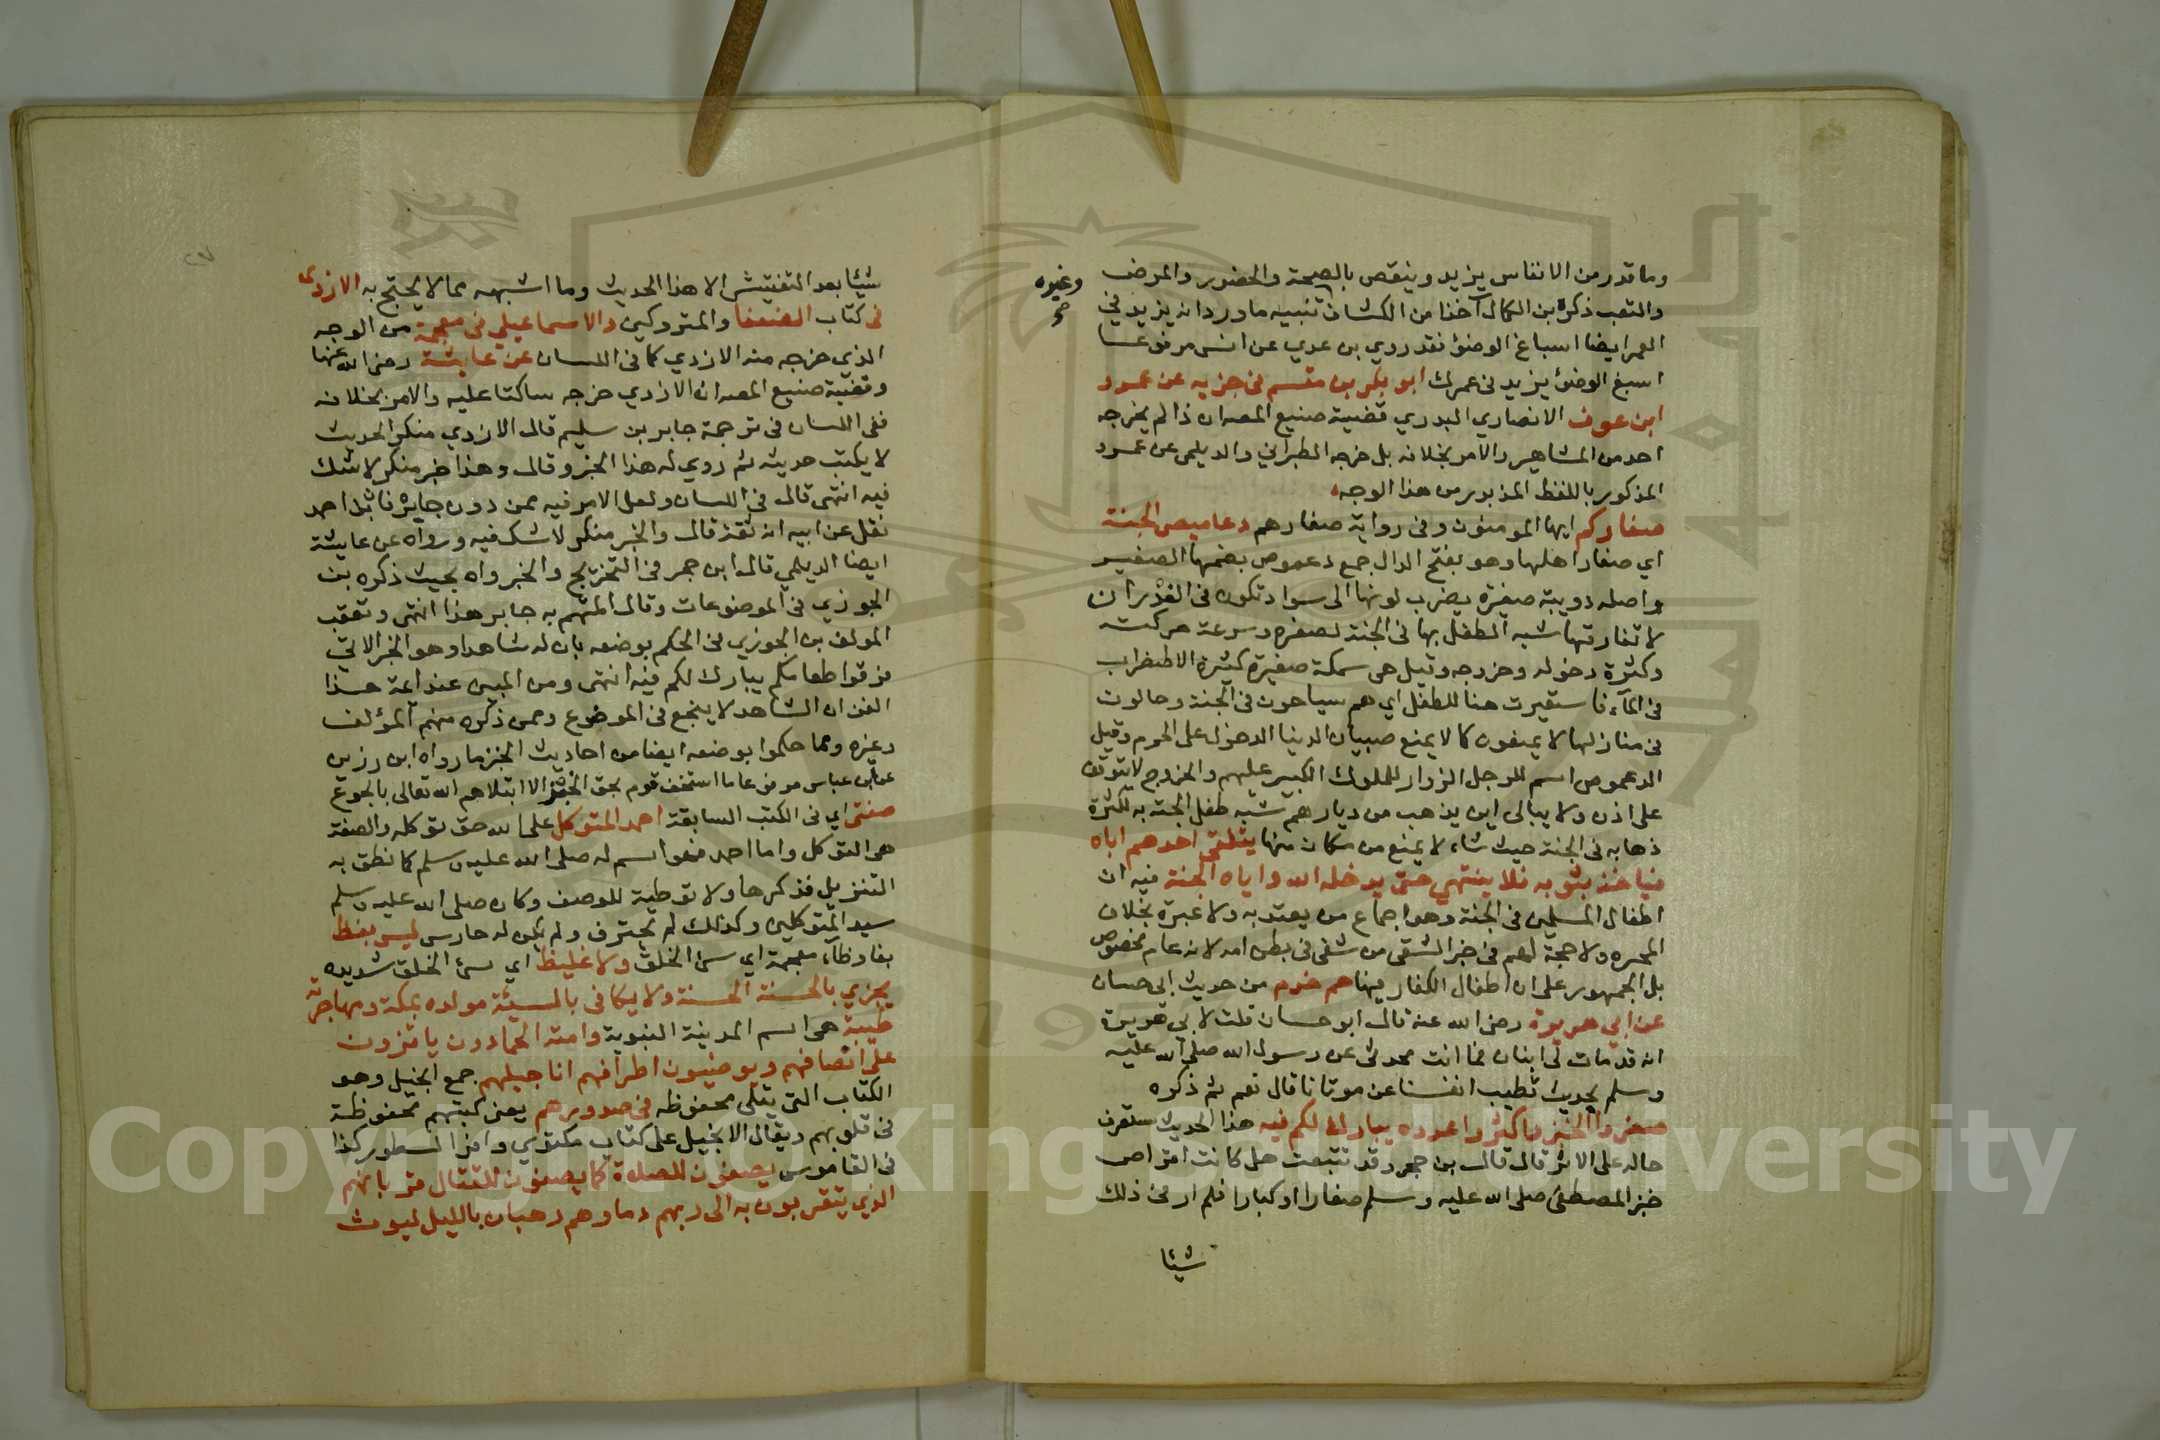 وما قدر من الانفاس يزيد وينقص بالصحة والحضور والمرض
والتعب ذكره بن الكمال آخذا من الكشاف تنبيه ما ورد انه يزيد في
وغيره
صح
العمر ايضا اسباغ الوضؤ فقد روي بن عدي عن انس مرفوعا
اسبغ الوضؤ يزيد في عمرك ابو بكر بن مقسم في جزيه عن عمرو
ابن عوف الانصاري البدري قضية صنيع المصه ان ذا لم يخرجه
احد من المشاهير والامر بخلافه بل خرجه الطبراني والديلمي عن عمرو
المذكور باللفظ المذبور من هذا الوجه
صغاركم ايها المومنون وفي رواية صغارهم دعاميص الجنة
اي صغار اهلها وهو بفتح الدال جمع دعموص بضمها الصغير
واصله دويبة صغيرة يضرب لونها الى سواد تكون في الغدران
لا تفارقها شبه الطفل بها في الجنة لصغره وسرعة حركته
وكثرة دخوله وخروجه وقيل هي سمكة صغيرة كثيرة الاضطراب
في المآء فاستعيرت هنا للطفل اي هم سياحون في الجنة وجالون
في منازلها لا يمنعون كما لا يمنع صبيان الدنيا الدخول على الحرم وقيل
الدعموص اسم للرجل الزوار للملوك الكبير عليهم والخروج لا يتوقف
على اذن ولا يبالي اين يذهب من ديارهم شبه طفل الجنة به لكثرة
ذهابه في الجنة حيث شاء لا يمنع من مكان منها يتلقى احدهم اباه
فياخذ بثوبه فلا ينتهي حتى يدخله الله واياه الجنة فيه ان
اطفال المسلمين في الجنة وهو اجماع من يعتد به ولا عبرة بخلاف
المجبره ولا حجة لهم في خبر الشقي من شقي في بطن امه لانه عام مخصوص
بل الجمهور على ان اطفال الكفار فيها هم خدم من حديث ابي حسان
عن ابي هريرة رضي الله عنه قال ابو حسان قلت لابي هريرة
انه قد مات لي ابنان فما انت محدثي عن رسول الله صلى الله عليه
وسلم بحديث تطيب انفسنا عن موتانا قال نعم ثم ذكره
صغروا الخبز واكثروا عدده يبارك لكم فيه هذا الحديث ستعرف
حاله على الاثر قال قال بن حجر وقد تتبعت هل كانت اقراص
خبز المصطفى صلى الله عليه وسلم صغارا او كبارا فلم ار في ذلك
شيئا
شيئا بعد التفتيش الا هذا الحديث وما اشبهه مما لا يحتج به الازدي
في كتاب الضعفا والمتروكين والاسماعيلي في معجمه من الوجه
الذي خرجه منه الازدي كما في اللسان عن عايشة رضي الله عنها
وقضية صنيع المصه ان الازدي خرجه ساكتا عليه والامر بخلافه
ففي اللسان في ترجمة جابر بن سليم قال الازدي منكر الحديث
لا يكتب حديثه ثم روي له هذا الخبر وقال وهذا خبر منكر لا شك
فيه انتهى قال في اللسان ولعل الامر فيه ممن دون جابر فان احمد
نقل عن ابيه انه ثقة قال والخبر منكر لا شك فيه ورواه عن عايشة
ايضا الديلمي قال ابن حجر في التخريج والخبر واه بحيث ذكره بن
الجوزي في الموضوعات وقال المتهم به جابر هذا انتهى وتعقب
المولف بن الجوزي في الحكم بوضعه بان له شاهدا وهو الخبر الاتي
فرقوا طعامكم يبارك لكم فيه انتهى ومن المبين عند اعمة هذا
الفن ان الشاهد لا ينجع في الموضوع وممن ذكره منهم المؤلف
وغيره ومما حكموا بوضعه ايضا من احاديث الخبز ما رواه ابن رزين
عن ابن عباس مرفوعا ما استخف قوم بحق الخبز الا ابتلاهم الله تعالى بالجوع
صفتي اي في الكتب السابقة احمد المتوكل على الله حق توكله والصفة
هي التوكل واما احمد فهو اسم له صلى الله عليه وسلم كما نطق به
التنزيل فذكرها ولا توطية للوصف وكان صلى الله عليه وسلم
سيد المتوكلين وكذلك لم يحترف ولم يكن له حارس ليس بفظ
بفا وظاء معجمة اي سئ الخلق ولا غليظ اي سئ الخلق شديده
يجزي بالحسنة الحسنة ولا يكافئ بالسيئة مولده بمكة ومهاجرته
طيبة هي اسم المدينة النبوية وامته الحمادون ياتزرون
على انصافهم ويوضئون اطرافهم اناجيلهم جمع انجيل وهو
الكتاب التي يتلى محفوظه في صدورهم يعني كتبهم محفوظة
في قلوبهم ويقال الانجيل على كتاب مكتوب وافر السطور كذا
في القاموس يصفون للصلاة كما يصفون للقتال قربانهم
الذي يتقربون به الى ربهم دماوهم رهبان بالليل ليوث
Copyright © King Saud University
جامعة الملك سعود
1957